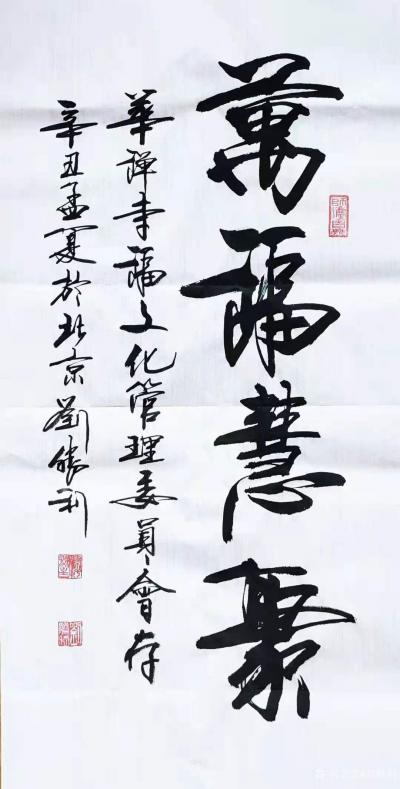 萬福慧聚
華禅寺福文化管理委員會存
辛丑孟夏於北京劉勝利